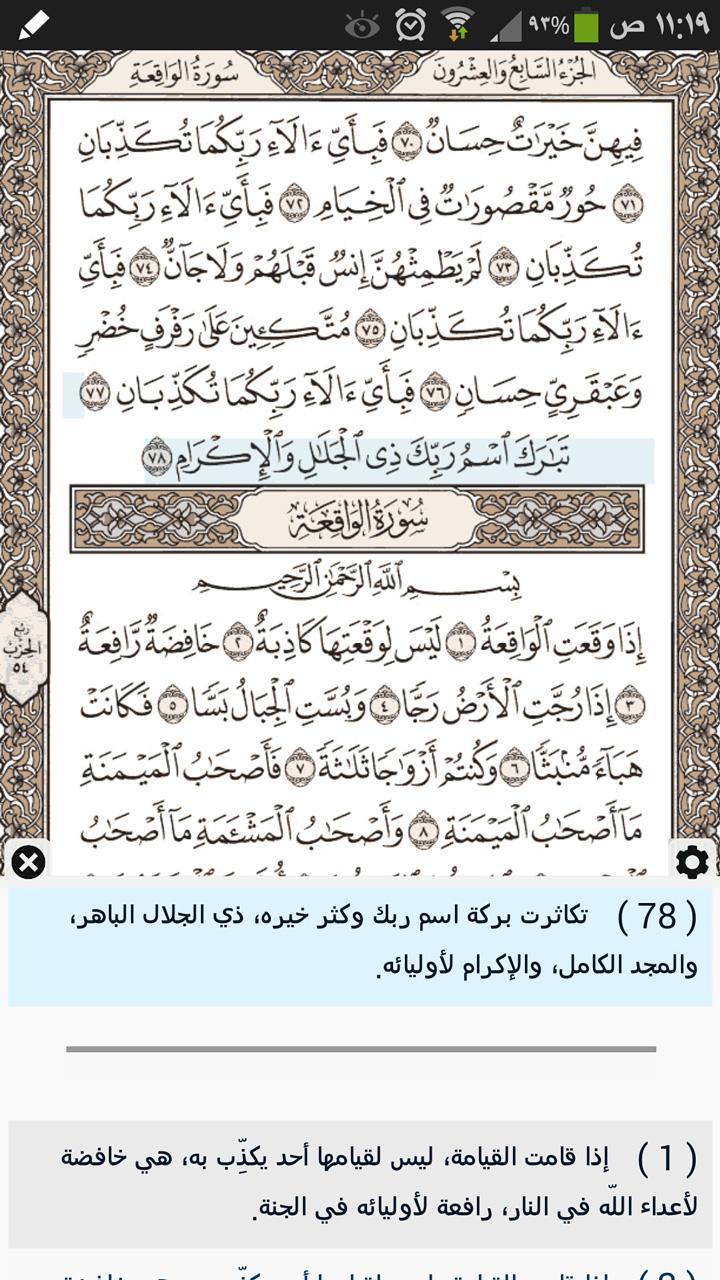 ١١:١٩ ص ٩٣%
الجزء السابع والعشرون سورة الواقعة
فِيهِنَّ خَيْرَٰتٌ حِسَانٌ ٧٠ فَبِأَيِّ ءَالَآءِ رَبِّكُمَا تُكَذِّبَانِ
٧١ حُورٌ مَّقْصُورَٰتٌ فِى ٱلْخِيَامِ ٧٢ فَبِأَيِّ ءَالَآءِ رَبِّكُمَا
تُكَذِّبَانِ ٧٣ لَمْ يَطْمِثْهُنَّ إِنسٌ قَبْلَهُمْ وَلَا جَآنٌّ ٧٤ فَبِأَيِّ
ءَالَآءِ رَبِّكُمَا تُكَذِّبَانِ ٧٥ مُتَّكِـِٔينَ عَلَىٰ رَفْرَفٍ خُضْرٍ
وَعَبْقَرِيٍّ حِسَانٍ ٧٦ فَبِأَيِّ ءَالَآءِ رَبِّكُمَا تُكَذِّبَانِ ٧٧
تَبَٰرَكَ ٱسْمُ رَبِّكَ ذِى ٱلْجَلَٰلِ وَٱلْإِكْرَامِ ٧٨
سُورَةُ الوَاقِعَة
بِسْمِ ٱللَّهِ ٱلرَّحْمَٰنِ ٱلرَّحِيمِ
إِذَا وَقَعَتِ ٱلْوَاقِعَةُ ١ لَيْسَ لِوَقْعَتِهَا كَاذِبَةٌ ٢ خَافِضَةٌ رَّافِعَةٌ
ربع
الحزب
٥٤
٣ إِذَا رُجَّتِ ٱلْأَرْضُ رَجًّا ٤ وَبُسَّتِ ٱلْجِبَالُ بَسًّا ٥ فَكَانَتْ
هَبَآءً مُّنۢبَثًّا ٦ وَكُنتُمْ أَزْوَٰجًا ثَلَٰثَةً ٧ فَأَصْحَٰبُ ٱلْمَيْمَنَةِ
مَآ أَصْحَٰبُ ٱلْمَيْمَنَةِ ٨ وَأَصْحَٰبُ ٱلْمَشْـَٔمَةِ مَآ أَصْحَٰبُ
( 78 ) تكاثرت بركة اسم ربك وكثر خيره، ذي الجلال الباهر،
والمجد الكامل، والإكرام لأوليائه.
( 1 ) إذا قامت القيامة، ليس لقيامها أحد يكذِّب به، هي خافضة
لأعداء اللّه في النار، رافعة لأوليائه في الجنة.